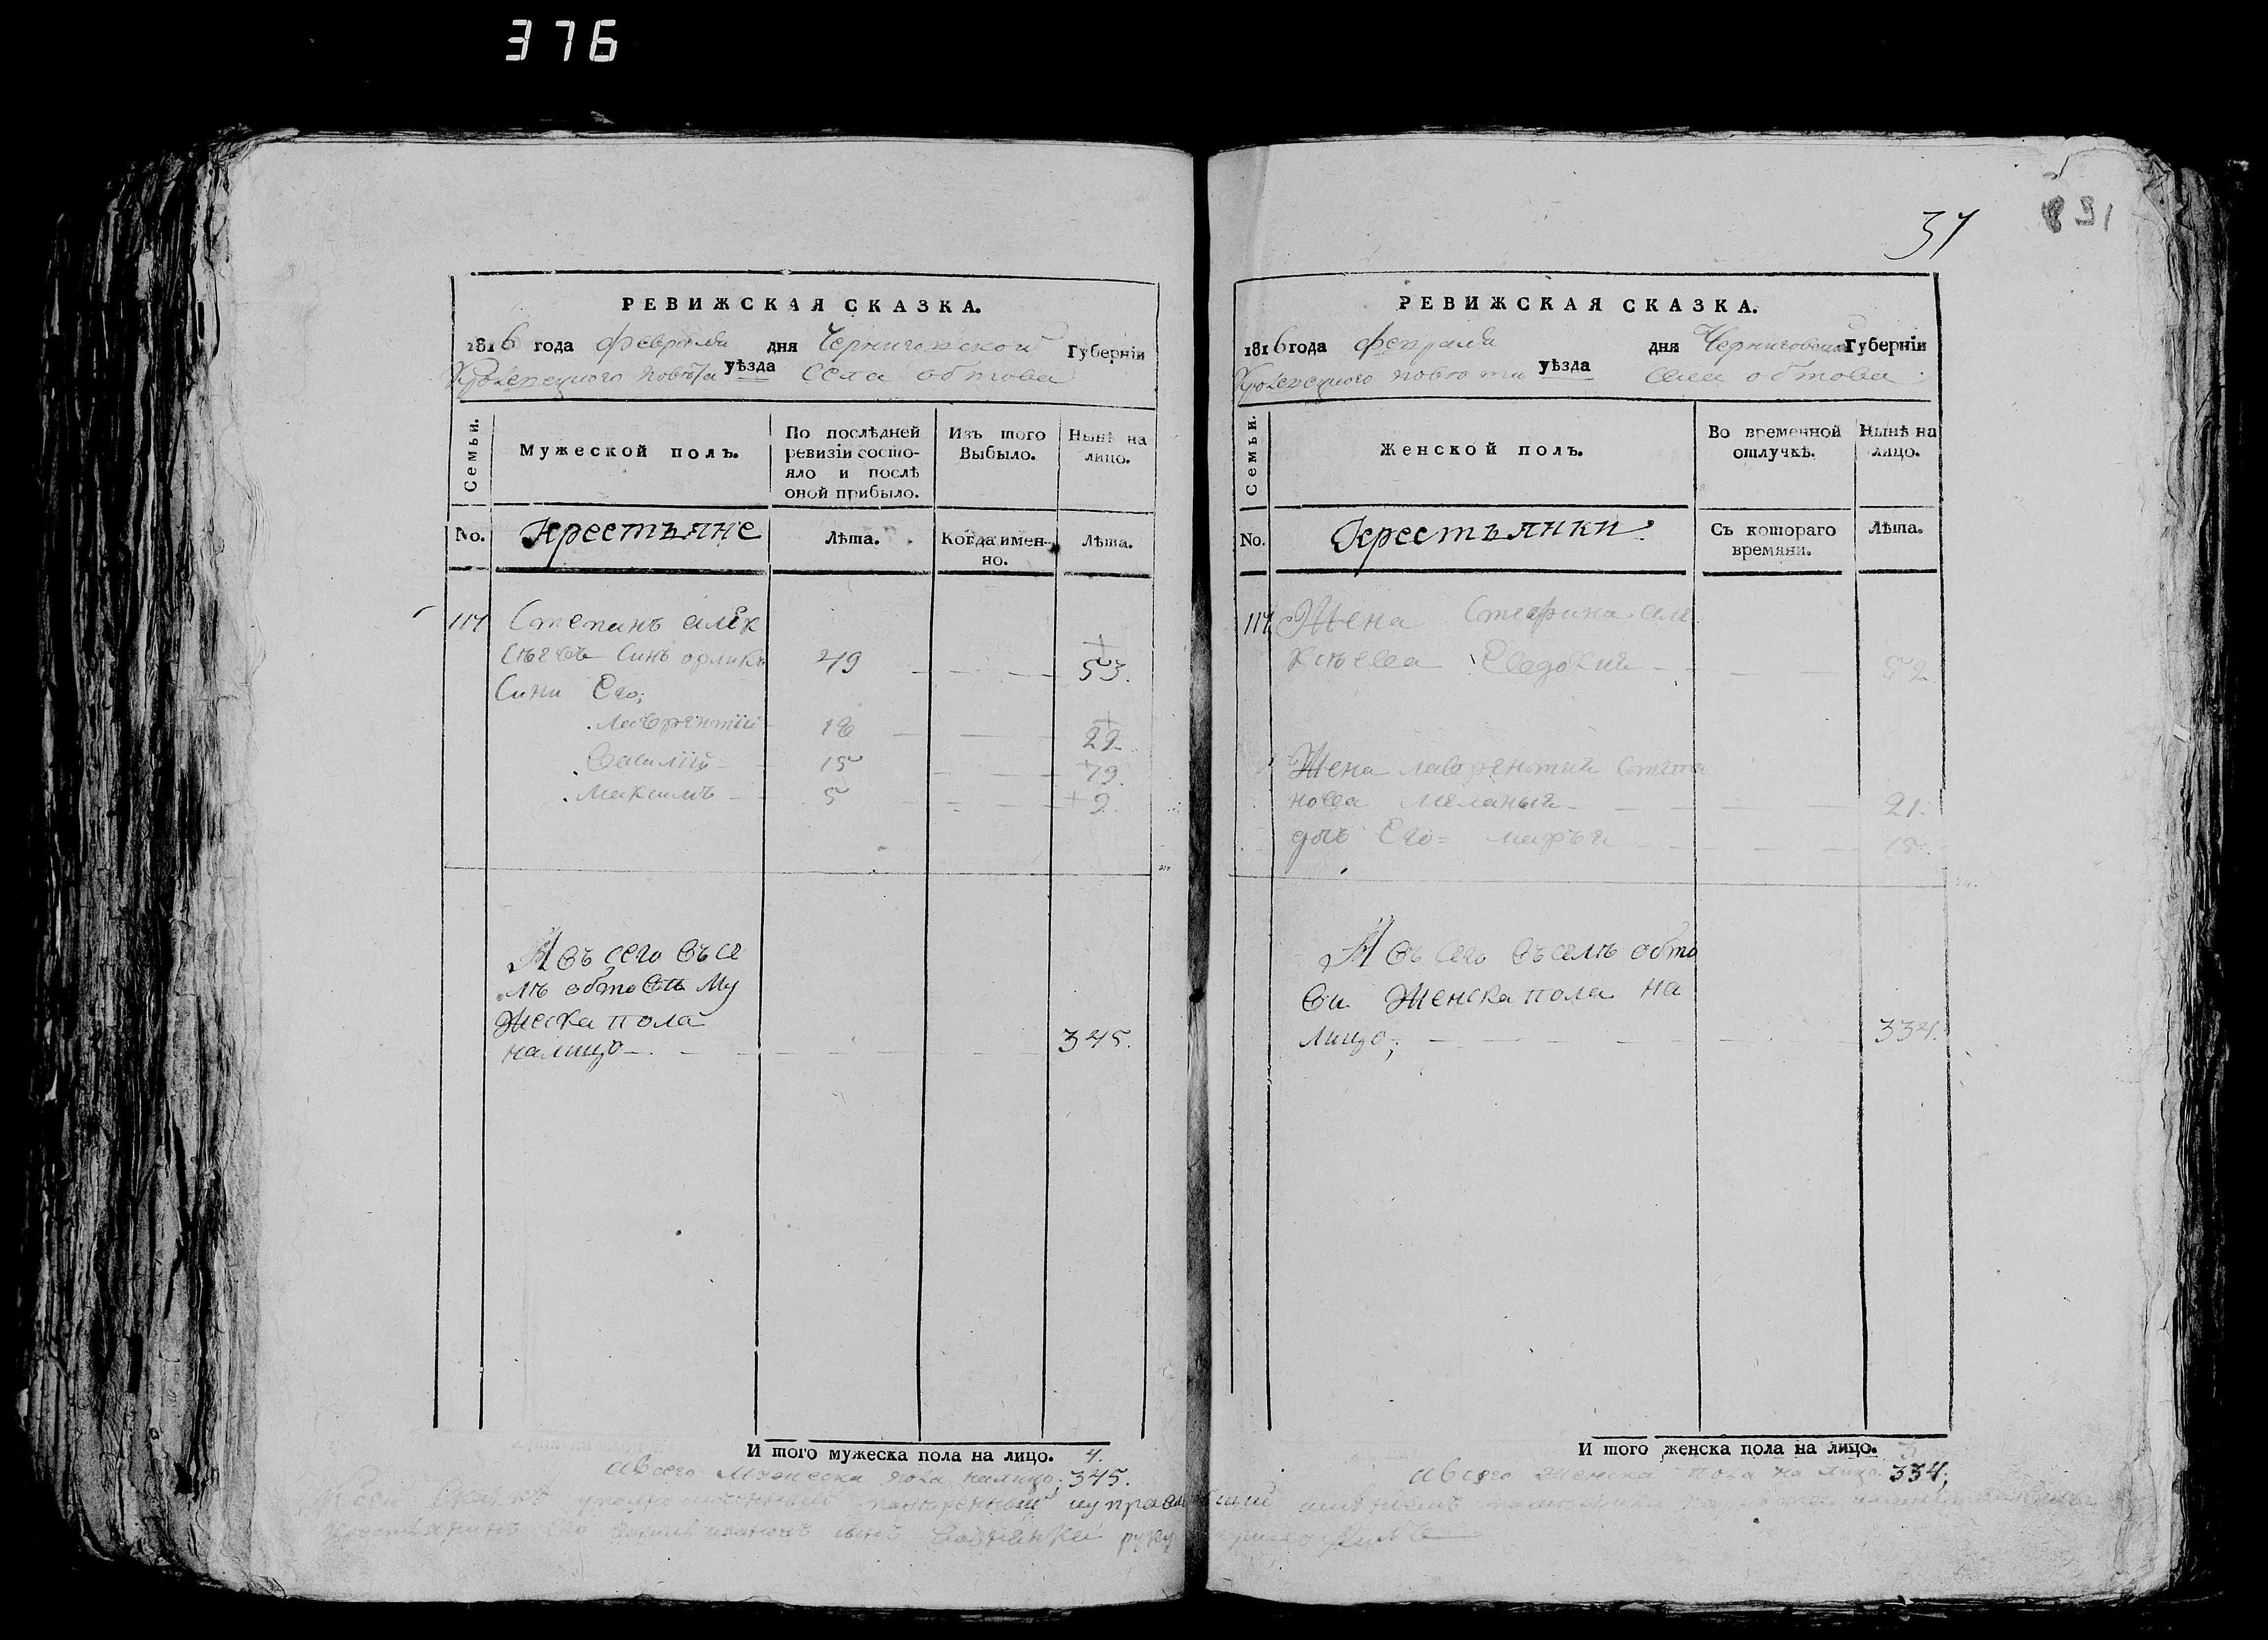 376
РЕВИЖСКАЯ СКАЗКА.
1816 года февраля дня Черниговской Губерніи
Кролевецкого повѣта уѣзда села обтова
Семьи.
Мужеской полъ.
По послѣдней ревизіи состояло и послѣ оной прибыло.
Изъ того Выбыло.
Нынѣ на лицо.
No.
Крестъяне
Лѣта.
Когда именно.
Лѣта.
117 Степанъ алек
сѣевъ Синъ орликъ 49 53.
Сини Его;
Лаврентий 18 22
Василій 15 19.
Максимъ 5 9
А въ сего въ се
лѣ обтови Му
жеска пола
налицо 345.
И того мужеска пола на лицо. 4.
авсего Мужеска пола налицо; 345.
37
РЕВИЖСКАЯ СКАЗКА.
1816 года февраля дня Черниговской Губерніи
Кролевецкого повѣта уѣзда села обтова
Семьи.
Женской полъ.
Во временной отлучкѣ.
Нынѣ на лицо.
No.
Крестъянки.
Съ котораго времяни.
Лѣта.
117 Жена Степана але
ксѣева Евдокия 52
Жена лаврентия степа
нова Меланья 21.
дочь Его= марья 15.
А въ сего въ селѣ обто
ви Женска пола на
лицо; 334.
И того женска пола на лицо. 3
авсего женска пола на лицо 334;
руку приложилъ